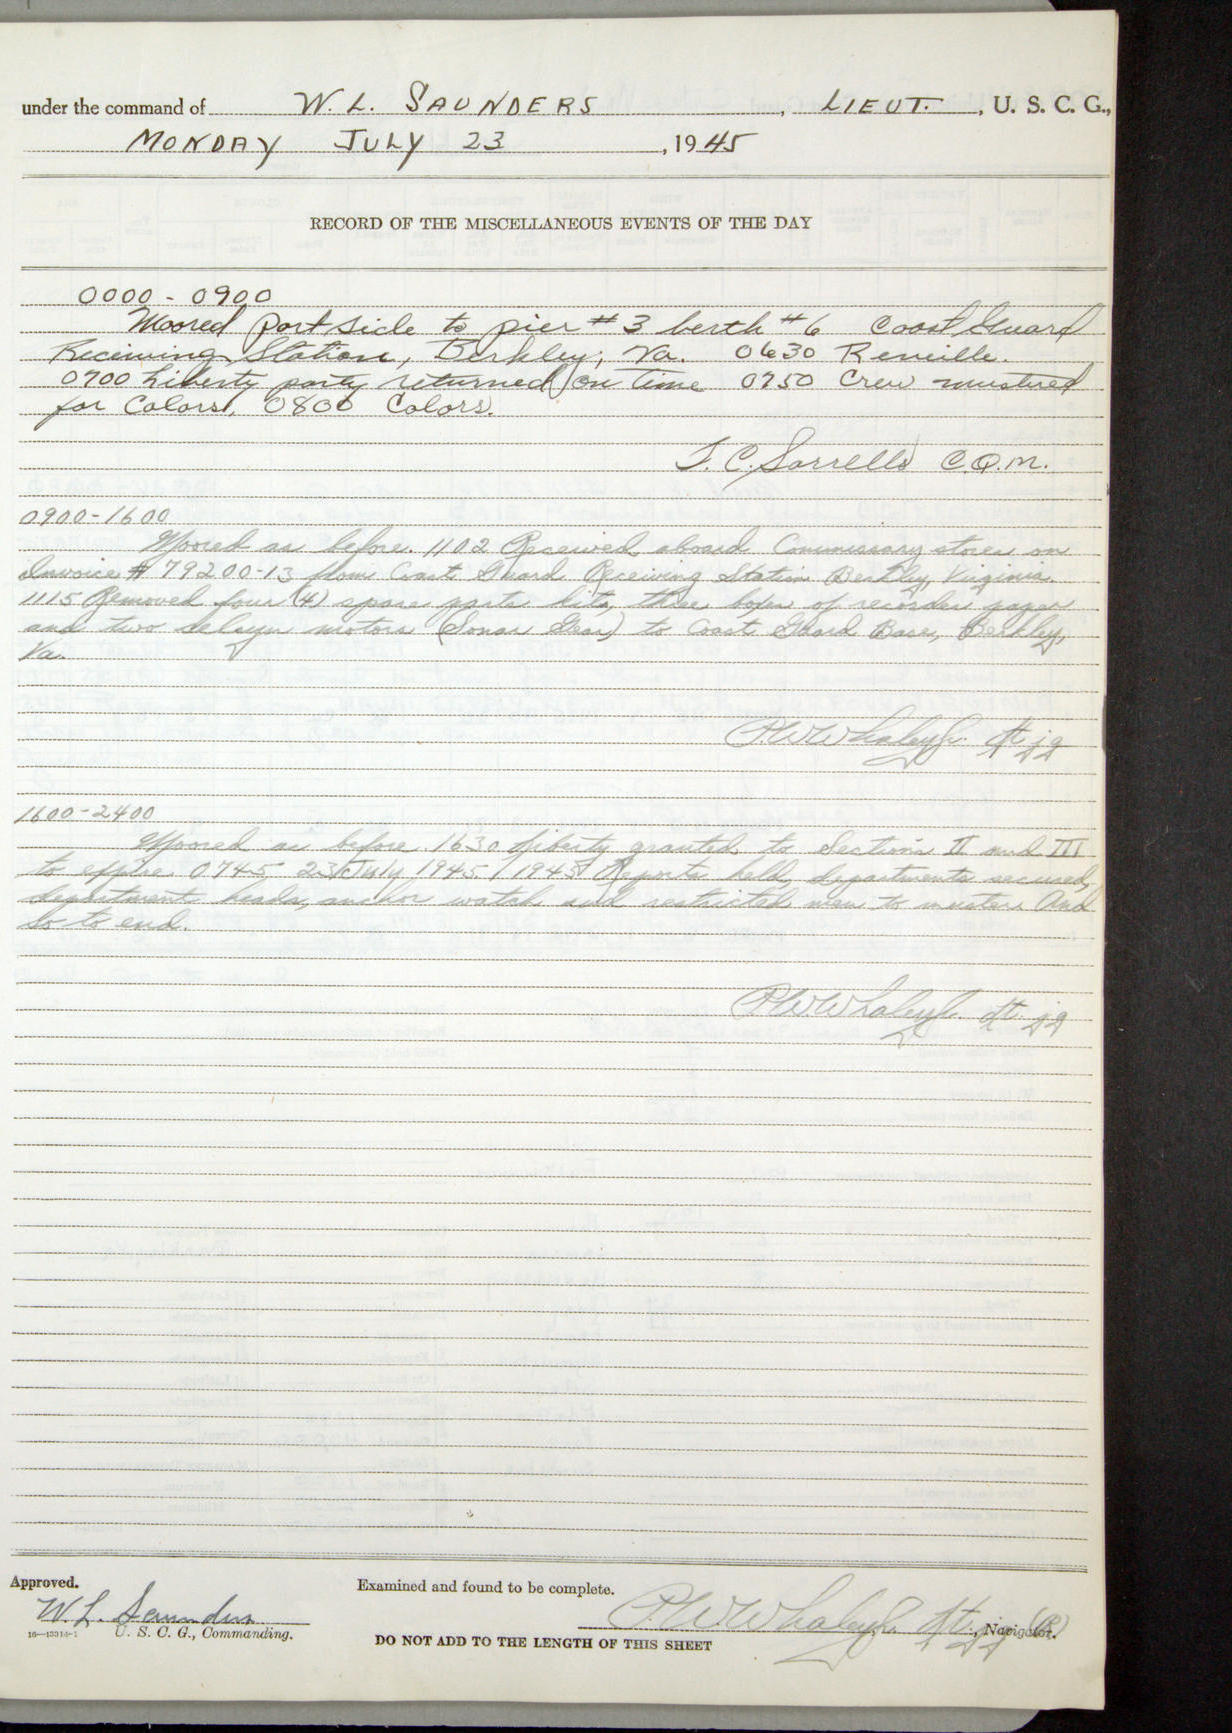 under the command of W. L. SAUNDERS, LIEUT., U. S. C. G.,
MONDAY JULY 23, 1945
RECORD OF THE MISCELLANEOUS EVENTS OF THE DAY
0000 - 0900
Moored port side to pier #3 berth #6 Coast Guard
Receiving Station, Berkley, Va. 0630 Reveille.
0700 Liberty party returned on time 0750 Crew mustered
for Colors, 0800 Colors.
T. C. Sorrells C.Q.M.
0900-1600
Moored as before. 1102 Received aboard Commissary stores on
Invoice # 79200-13 from Coast Guard Receiving Station Berkley, Virginia.
1115 Removed four (4) spare parts kits, three boxes of recorder paper
and two selsyn motors (Sonar Gear) to Coast Guard Base, Berkley,
Va.
P.W. Whaley Jr. Lt jg
1600-2400
Moored as before. 1630 Liberty granted to Sections II and III
to expire 0745 23 July 1945. 1945 Reports held, departments secured,
department heads, anchor watch and restricted men to muster. And
so to end.
P.W. Whaley Jr. Lt. jg
Approved.
W. L. Saunders
16—13314-1 U. S. C. G., Commanding.
Examined and found to be complete.
P.W. Whaley Jr. Lt. jg (R), Navigator.
DO NOT ADD TO THE LENGTH OF THIS SHEET